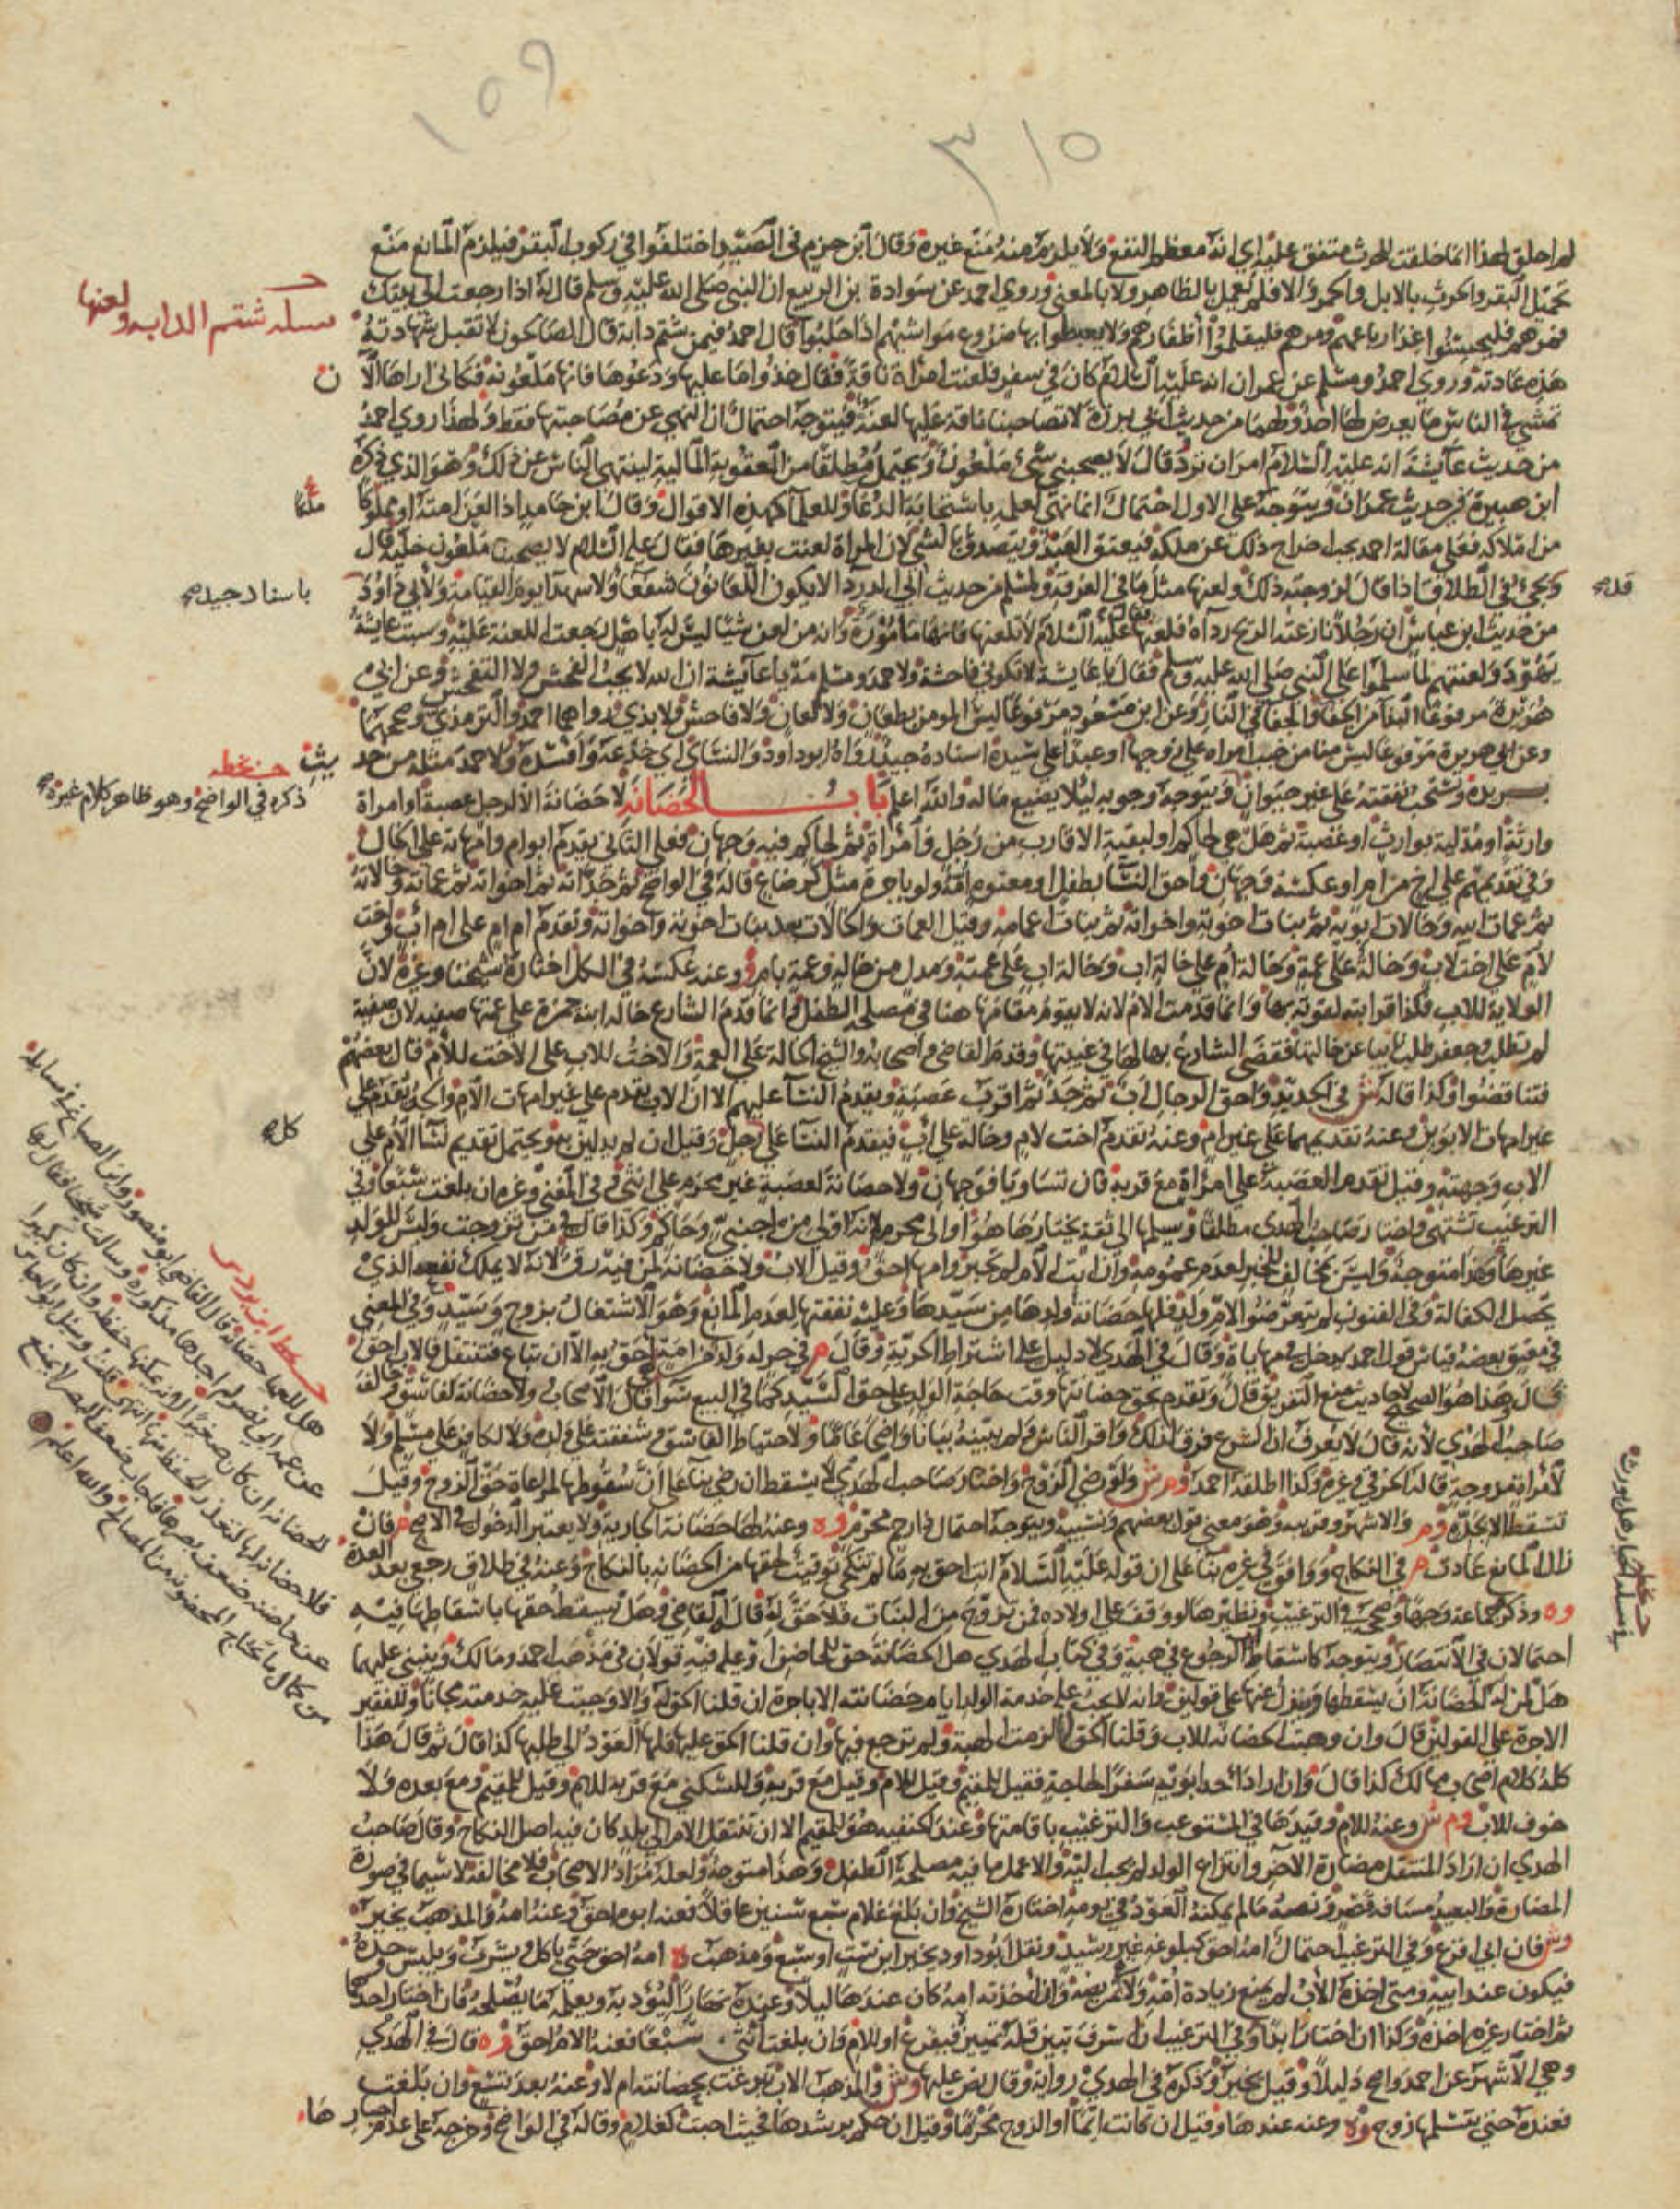 ١٥٩
٣١٥
لم اخلق لهذا انما خلقت للحرث متفق عليه اي انه معظم النفع ولا يلزم منه منع غيره وقال ابن حزم في الصيد اختلفوا في ركوب البقر فيلزم المانع منع
تحميل البقر والحرث بالابل والحمر والا فلم يعمل بالظاهر ولا بالمعنى وروي احمد عن سوادة بن الربيع ان النبي صلى الله عليه وسلم قال له اذا رجعت الى بيتك
فمرهم فليحسنوا غذا رباعهم ومرهم فليقلموا أظفارهم ولا يعبطوا بها ضروع مواشيهم اذا حلبوا قال احمد فيمن شتم دابة قال الصالحون لا تقبل شهادته
مسلة شتم الدابه ولعنها
هذه عادته وروي احمد ومسلم عن عمران انه عليه السلام كان في سفر فلعنت امراة ناقة فقال خذوا ما عليها ودعوها فانها ملعونة فكاني اراها الآن
تمشي في الناس ما يعرض لها احد ولهما من حديث ابي برزة لا تصاحبنا ناقة عليها لعنة فيتوجه احتمال ان النهي عن مصاحبتها فقط ولهذا روي احمد
من حديث عائشة انه عليه السلام امر ان ترد وقال لا يصحبني شيء ملعون ويحتمل مطلقا من العقوبة المالية لينتهي الناس عن ذلك وهو الذي ذكره
ابن هبيرة في حديث عمران ويتوجه على الاول احتمال انما نهى لعلمه باستجابة الدعا وللعلما كهذه الاقوال وقال ابن حامد اذا لعن امته او ملكا
من املاكه فعلى مقالة احمد يجب اخراج ذلك عن ملكه فيعتق العبد ويتصدق بالشي لان المراة لعنت بعيرها فقال عليه السلام لا يصحبنا ملعون خليه قال
ويجئ في الطلاق اذا قال لزوجته ذلك ولعنها مثل ما في الفرقة ولمسلم من حديث ابي الدرداء لا يكون اللعانون شفعا ولا شهدا يوم القيامة ولابي داود
باسناد جيد
من حديث ابن عباس ان رجلا نازعته الريح رداه فلعنها فقال عليه السلام لا تلعنها فانها مأمورة وانه من لعن شيئا ليس له باهل رجعت اللعنة عليه وسبت عايشة
يهود ولعنتهم لما سلموا على النبي صلى الله عليه وسلم فقال يا عايشة لا تكوني فاحشة ولاحمد ومسلم مه يا عائشة ان الله لا يحب الفحش ولا التفحش وعن ابي
هريرة مرفوعا البذا من الجفا والجفا في النار وعن ابن مسعود مرفوعا ليس المومن بطعان ولا لعان ولا فاحش ولا بذي رواهما احمد والترمذي وصححهما
وعن ابي هريرة مرفوعا ليس منا من خبب امراه على زوجها او عبدا على سيده اسناده جيد رواه ابو داود والنسائي اي خدعه وافسده ولاحمد مثله من حديث
بريدة وتستحب نفقته على غير حيوان ويتوجه وجوبه ليلا يضيع ماله والله اعلم باب الحضانة لا حضانة الا لرجل عصبة او امراة
ذكره في الواضح وهو ظاهر كلام غيره
وارثة او مدلية بوارث او عصبة ثم هل هي لحاكم او لبقية الاقارب من رجل وامراة ثم لحاكم فيه وجهان فعلى الثاني يقدم ابو ام وامهاته على الخال
وفي تقديمهم على اخ من ام او عكسه وجهان واحق النسا بطفل او معتوه امه ولو باجرة مثل كرضاع قاله في الواضح ثم جداته ثم اخواته ثم عماته وخالاته
ثم عمات ابيه وخالات ابويه ثم بنات اخوته واخواته ثم بنات اعمامه وقيل العمات والخالات بعد بنات اخوته واخواته وتقدم ام ام على ام اب واخت
لام على اخت لاب وخالة على عمة وخالة ام على خالة اب وخالة اب على عمته ومدل من خالة وعمة بام وعنه عكسه في الكل اختاره شيخنا وغيره لان
الولاية للاب فكذا قرابته لقوته بها وانما قدمت الام لانه لا يقوم مقامها هنا في مصلحة الطفل وانما قدم الشارع خالة ابنة حمزة على عمتها صفية لان صفية
لم تطلب وجعفر طلب نايبا عن خالتها فقضى الشارع بها لها في غيبتها وقدم القاضي واصحابه والشيخ الخالة على العمة والاخت للاب على الاخت للام قال بعضهم
فتناقضوا وكذا قاله ش في الجديد واحق الرجال اب ثم جد ثم اقرب عصبة ويقدم النسا عليهم الا ان الاب يقدم على غير امهات الام والجد يقدم على
غير امهات الابوين وعنه تقديمهما على غير ام وعنه تقدم اخت لام وخالة على اب فيقدم النسا على كل رجل وقيل ان لم يدلين به ويحتمل تقديم نسا الام على
الاب وجهته وقيل تقدم العصبة على امراة مع قربه فان تساويا فوجهان ولا حضانة لعصبة غير محرم على انثى وفي المغني وغيره ان بلغت سبعا وفي
الترغيب تشتهى واختار صاحب الهدى مطلقا ويسلمها الى ثقة يختارها هو او الى محرمه لانه اولى من اجنبي وحاكم وكذا قال في من تزوجت وليس للولد
غيرها وهذا متوجه وليس بمخالف للخبر لعدم عمومه وان ابت الام لم تجبر وامها احق وقيل الاب ولا حضانة لمن فيه رق لانه لا يملك نفعه الذي
يحصل الكفالة وفي الفنون لم يتعرضوا لام ولد فلها حضانة ولدها من سيدها وعليه نفقتها لعدم المانع وهو الاشتغال بزوج وسيد وفي المغني
في معتق بعضه قياس قول احمد يدخل في مهاياة وقال في الهدي لا دليل على اشتراط الحرية وقال م في حر له ولد من امة هي احق به الا ان تباع فتنتقل فالاب احق
قال وهذا هو الصحيح لاحاديث منع التفريق قال ويقدم بحق حضانتها وقت حاجة الولد على حق السيد كما في البيع سوا قال الاصحاب ولا حضانة لفاسق وخالف
صاحب الهدي لانه قال لا يعرف ان الشرع فرق لذلك واقر الناس ولم يبينه بيانا واضحا عاما ولاحتياط الفاسق وشفقته على ولده ولا لكافر على مسلم ولا
لامراة مزوجة قاله الخرقي وغيره وكذا اطلقه احمد وم ش ولو رضي الزوج واختار صاحب الهدي لا يسقط ان رضي بنا على ان سقوطها لمراعاة حق الزوج وقيل
تسقط الا بجده وم والاشهر وقريبه وهو معنى قول بعضهم ونسيبه ويتوجه احتمال ذا رحم محرم وه وعنه لها حضانة الجارية ولا يعتبر الدخول في الاصح م فان
زال المانع عاد حق م في النكاح ووافقوا في غيره بنا على ان قوله عليه السلام انت احق به ما لم تنكحي توقيت لحقها من الحضانة بالنكاح وعنه في طلاق رجعي بعد العدة
وه وذكره جماعة وجها وصححه في الترغيب ونظيرها لو وقف على اولاده فمن تزوج من البنات فلا حق له قاله القاضي وهل يسقط حقها باسقاطها فيه
احتمالان في الانتصار ويتوجه كاسقاط اب الرجوع في هبة وفي كتاب الهدي هل الحضانة حق للحاضن او عليه فيه قولان في مذهب احمد ومالك وينبني عليهما
هل لمن له الحضانة ان يسقطها وينزل عنها على قولين وانه لا يجب عليه خدمة الولد ايام حضانته الا باجرة ان قلنا الحق له والا وجبت عليه خدمته مجانا وللفقير
الاجرة على القولين قال وان وهبت الحضانة للاب وقلنا الحق لها لزمت الهبة ولم ترجع فيها وان قلنا الحق عليها فلها العود الى طلبها كذا قال ثم قال هذا
كله كلام اصحاب مالك كذا قال وان اراد احد ابويه سفرا لحاجة فقيل للمقيم وقيل للام وقيل مع قربه وللسكنى مع قربه للام وقيل للمقيم ومع بعده ولا
خوف للاب وم ش وعنه للام وقيدها في المستوعب والترغيب باقامتها وعند الحنفية هو للمقيم الا ان تنتقل الام الى بلد كان فيه اصل النكاح وقال صاحب
الهدي ان اراد المنتقل مضارة الاخر وانتزاع الولد لم يجب اليه والا عمل ما فيه مصلحة الطفل وهذا متوجه ولعله مراد الاصحاب فلا مخالفة لا سيما في صورة
المضارة والبعيد مسافة قصر ونصه ما لم يمكنه العود في يومه اختاره الشيخ وان بلغ غلام سبع سنين عاقلا فعنه ابوه احق وعنه امه والمذهب يخير
وش فان ابى اقرع وفي الترغيب احتمال امه احق كبلوغه غير رشيد ونقل ابو داود يخير ابن ست او سبع ومذهب ه امه احق حتى ياكل ويشرب ويلبس وحده
فيكون عند ابيه ومتى اخذه الاب لم يمنع زيادة امه ولا تمريضه وان اخذته امه كان عندها ليلا وعنده نهارا ليؤدبه ويعلمه ما يصلحه فان اختار احدهما
ثم اختار غيره اخذه وكذا ان اختار ابدا وفي الترغيب ان اسرف تبين قلة تمييزه فيقرع او للام وان بلغت انثى سبعا فعنه الام احق وه قال في الهدي
وهي الاشهر عن احمد واصح دليلا وقيل يخير وذكره في الهدي رواية وقال نص عليها وش والمذهب الاب تبرعت بحضانته ام لا وعنه بعد تسع وان بلغت
فعنده حتى يتسلمها زوج وه وعنه عندها وقيل ان كانت ايما او الزوج محرما وقيل ان حكم برشدها فحيث احبت كغلام وقاله في الواضح وخرجه على عدم اجبارها
بخط ابن بردس
هل للعميا حضانة قال القاضي ابو منصور وابن الصباغ في مسايله
عن عمه ابي نصر لم اجدها مذكورة وسالت شيخنا فقال لها
الحضانة ان كان صغيرا لانه يمكنها حفظه وان كان كبيرا
فلا حضانة لها لتعذر الحفظ منها انتهى قلت وسيل ابو العباس
عن حاضنة ضعف بصرها فاجاب ضعف البصر لا يمنع
من كمال ما يحتاج المحضون من المصالح والله اعلم